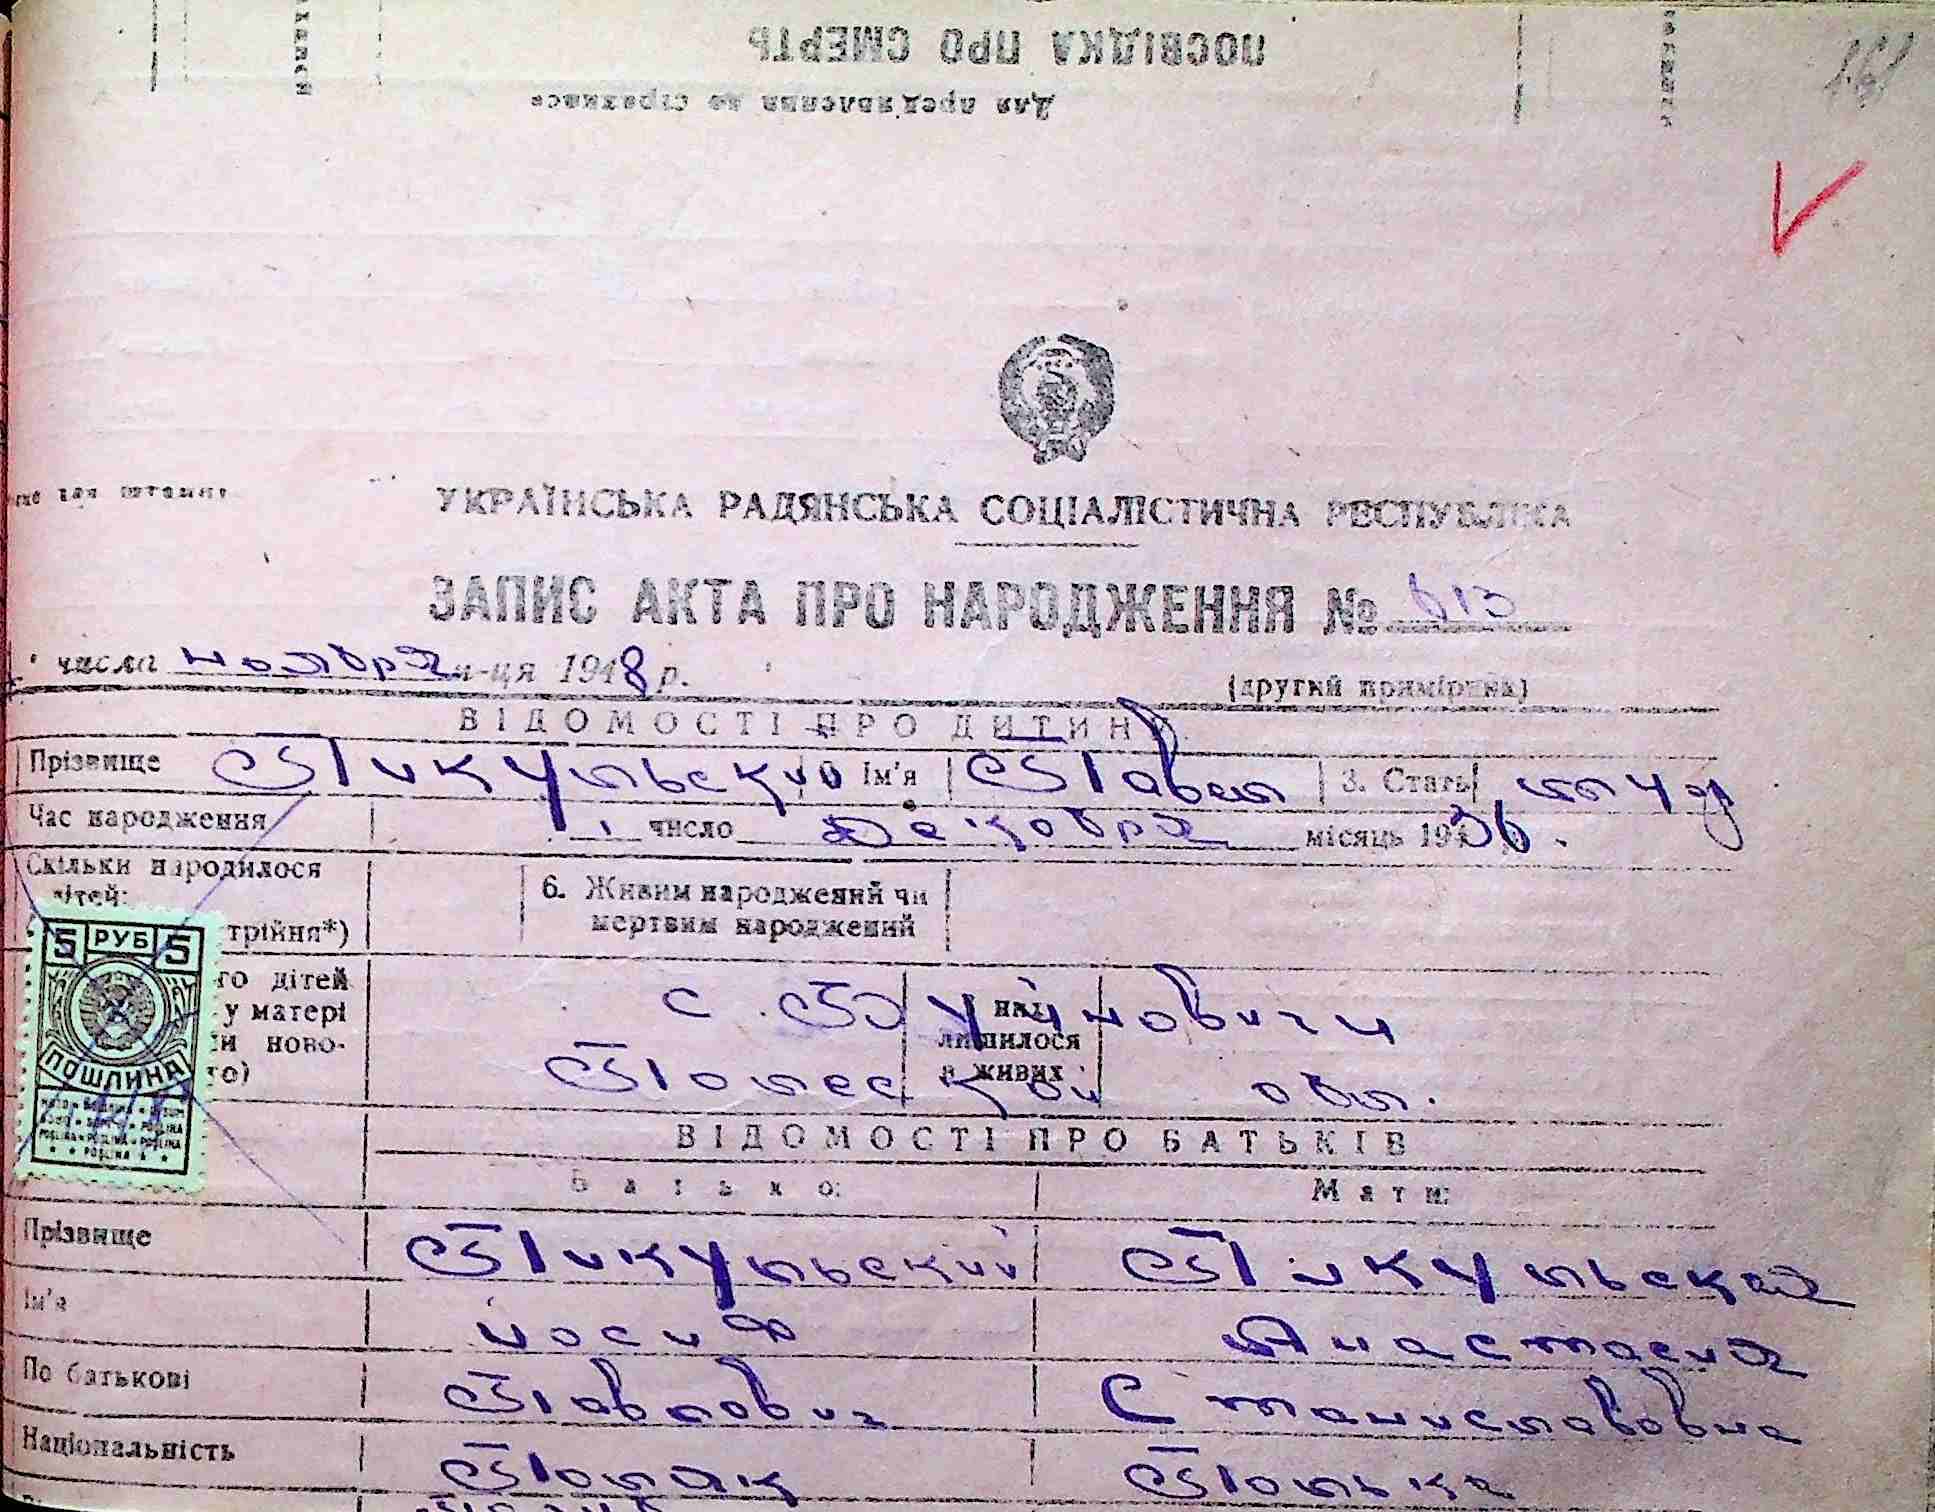 ПОСВІДКА ПРО СМЕРТЬ
Для пред'явлення до страхкаси
161
УКРАЇНСЬКА РАДЯНСЬКА СОЦІАЛІСТИЧНА РЕСПУБЛІКА
ЗАПИС АКТА ПРО НАРОДЖЕННЯ № 613
числа ноября м-ця 1948 р.
(другий примірник)
ВІДОМОСТІ ПРО ДИТИНУ
Прізвище Пикульский Ім'я Павел 3. Стать муж
Час народження 1 число Декабря місяць 1936.
Скільки народилося дітей: трійня*)
6. Живим народжений чи мертвим народжений
го дітей у матері ново-
лишилося в живих
Полеской обл.
ВІДОМОСТІ ПРО БАТЬКІВ
Батько: Мати:
Прізвище Пикульский Пикульская
Ім'я Иосиф Анастасия
По батькові Павлович Станиславовна
Національність Поляк Полька
5 РУБ 5
ПОШЛИНА